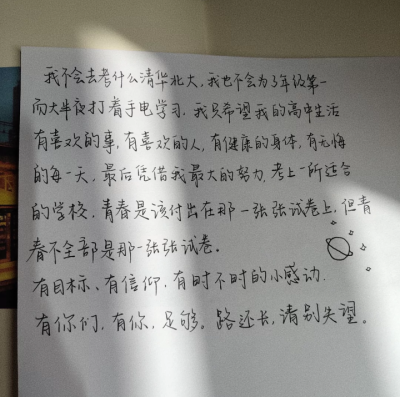 我不会去考什么清华北大,我也不会为了年级第一
而大半夜打着手电学习,我只希望我的高中生活
有喜欢的事,有喜欢的人,有健康的身体,有无悔
的每一天,最后凭借我最大的努力,考上一所适合
的学校,青春是该付出在那一张张试卷上,但青
春不全部是那一张张试卷。
有目标、有信仰,有时不时的小感动.
有你们,有你,足够。路还长,请别失望。